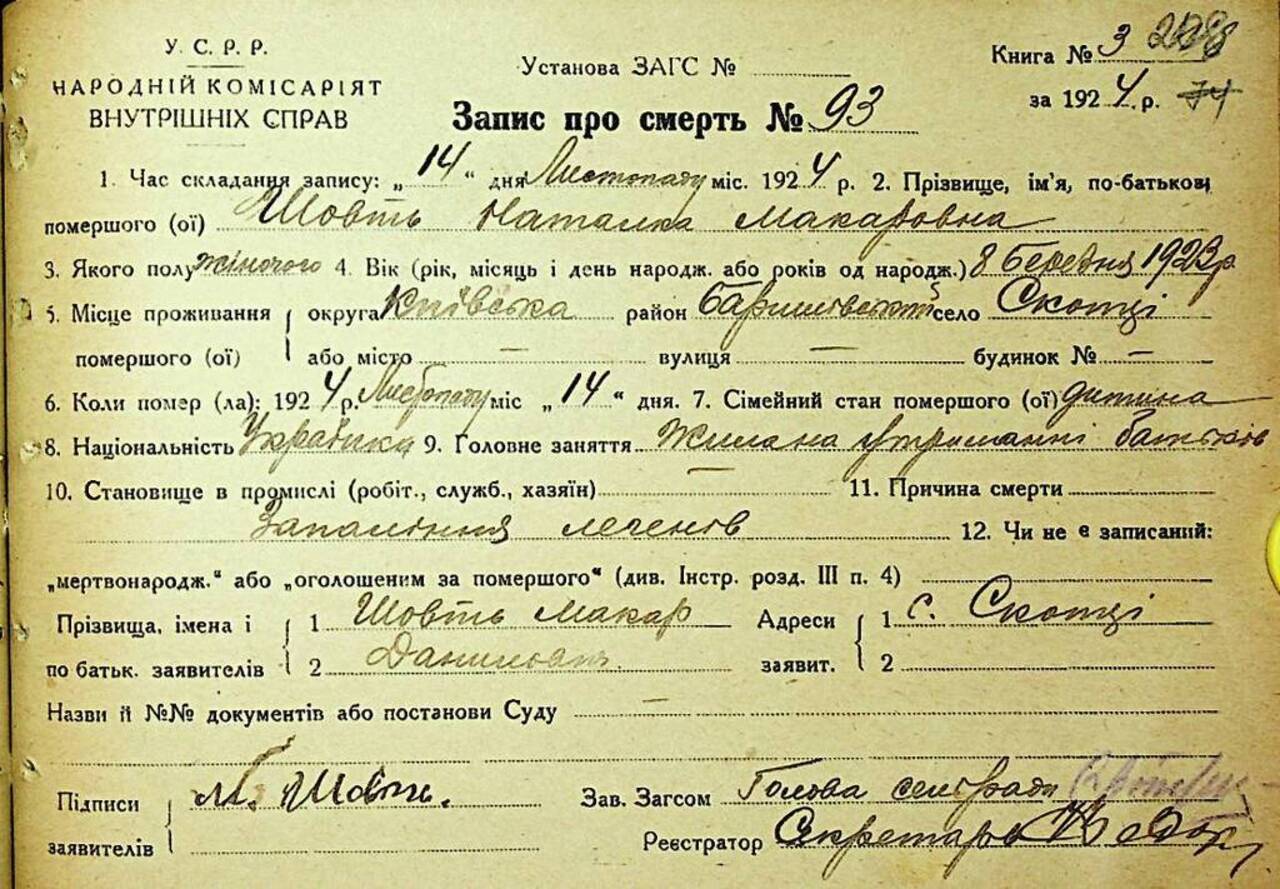 У. С. Р. Р.
НАРОДНІЙ КОМІСАРІЯТ
ВНУТРІШНІХ СПРАВ
Установа ЗАГС №
Книга № 3
за 1924 р. 74
Запис про смерть № 93
1. Час складання запису: „ 14 “ дня Листопаду міс. 1924 р. 2. Прізвище, ім'я, по-батькові
помершого (ої) Шовть Наталка Макаровна
3. Якого полу жіночого 4. Вік (рік, місяць і день народж. або років од народж.) 8 Березня 1923 р.
5. Місце проживання округа Київська район Баришівський село Скопці
помершого (ої) або місто — вулиця — будинок № —
6. Коли помер (ла): 1924 р. Листопаду міс „ 14 “ дня. 7. Сімейний стан помершого (ої) дитина
8. Національність Українка 9. Головне заняття Жила на утриманні батьків
10. Становище в промислі (робіт., служб., хазяїн) — 11. Причина смерти
Запаління легенів 12. Чи не є записаний:
„мертвонародж.“ або „оголошеним за помершого“ (див. Інстр. розд. III п. 4)
Прізвища, імена і 1 Шовть Макар Адреси 1 с. Скопці
по батьк. заявителів 2 Данилович заявит. 2
Назви й №№ документів або постанови Суду —
Підписи М. Шовть. Зав. Загсом Голова сельради
заявителів Реєстратор Секретарь